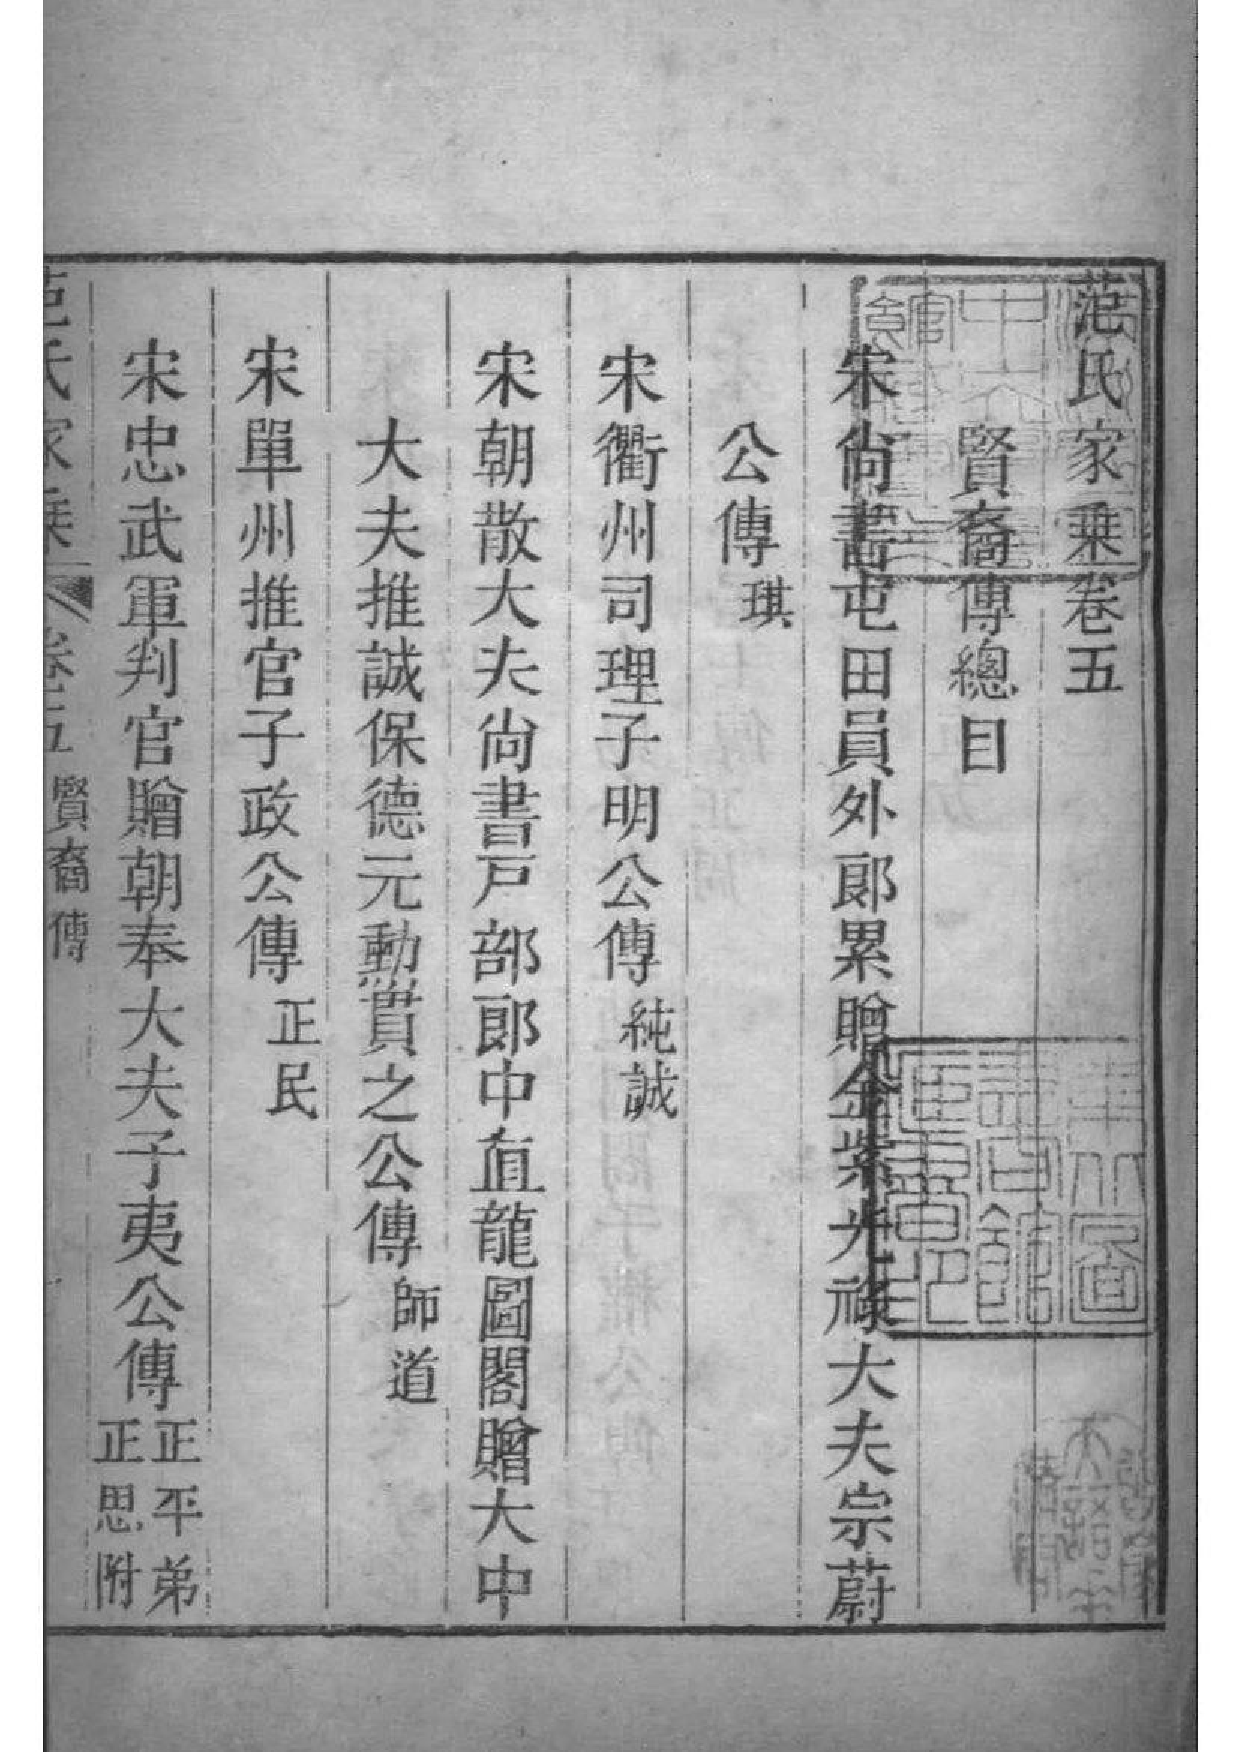 范氏家乗卷五
賢裔傳總目
宋尚書屯田員外郎累贈金紫光祿大夫宗蔚
公傳琪
宋衢州司理子明公傳純誠
宋朝散大夫尚書戸部郎中直龍圖閣贈大中
大夫推誠保德元勳貫之公傳師道
宋單州推官子政公傳正民
宋忠武軍判官贈朝奉大夫子夷公傳正平弟
正思附
范氏家乗 卷五 賢裔傳